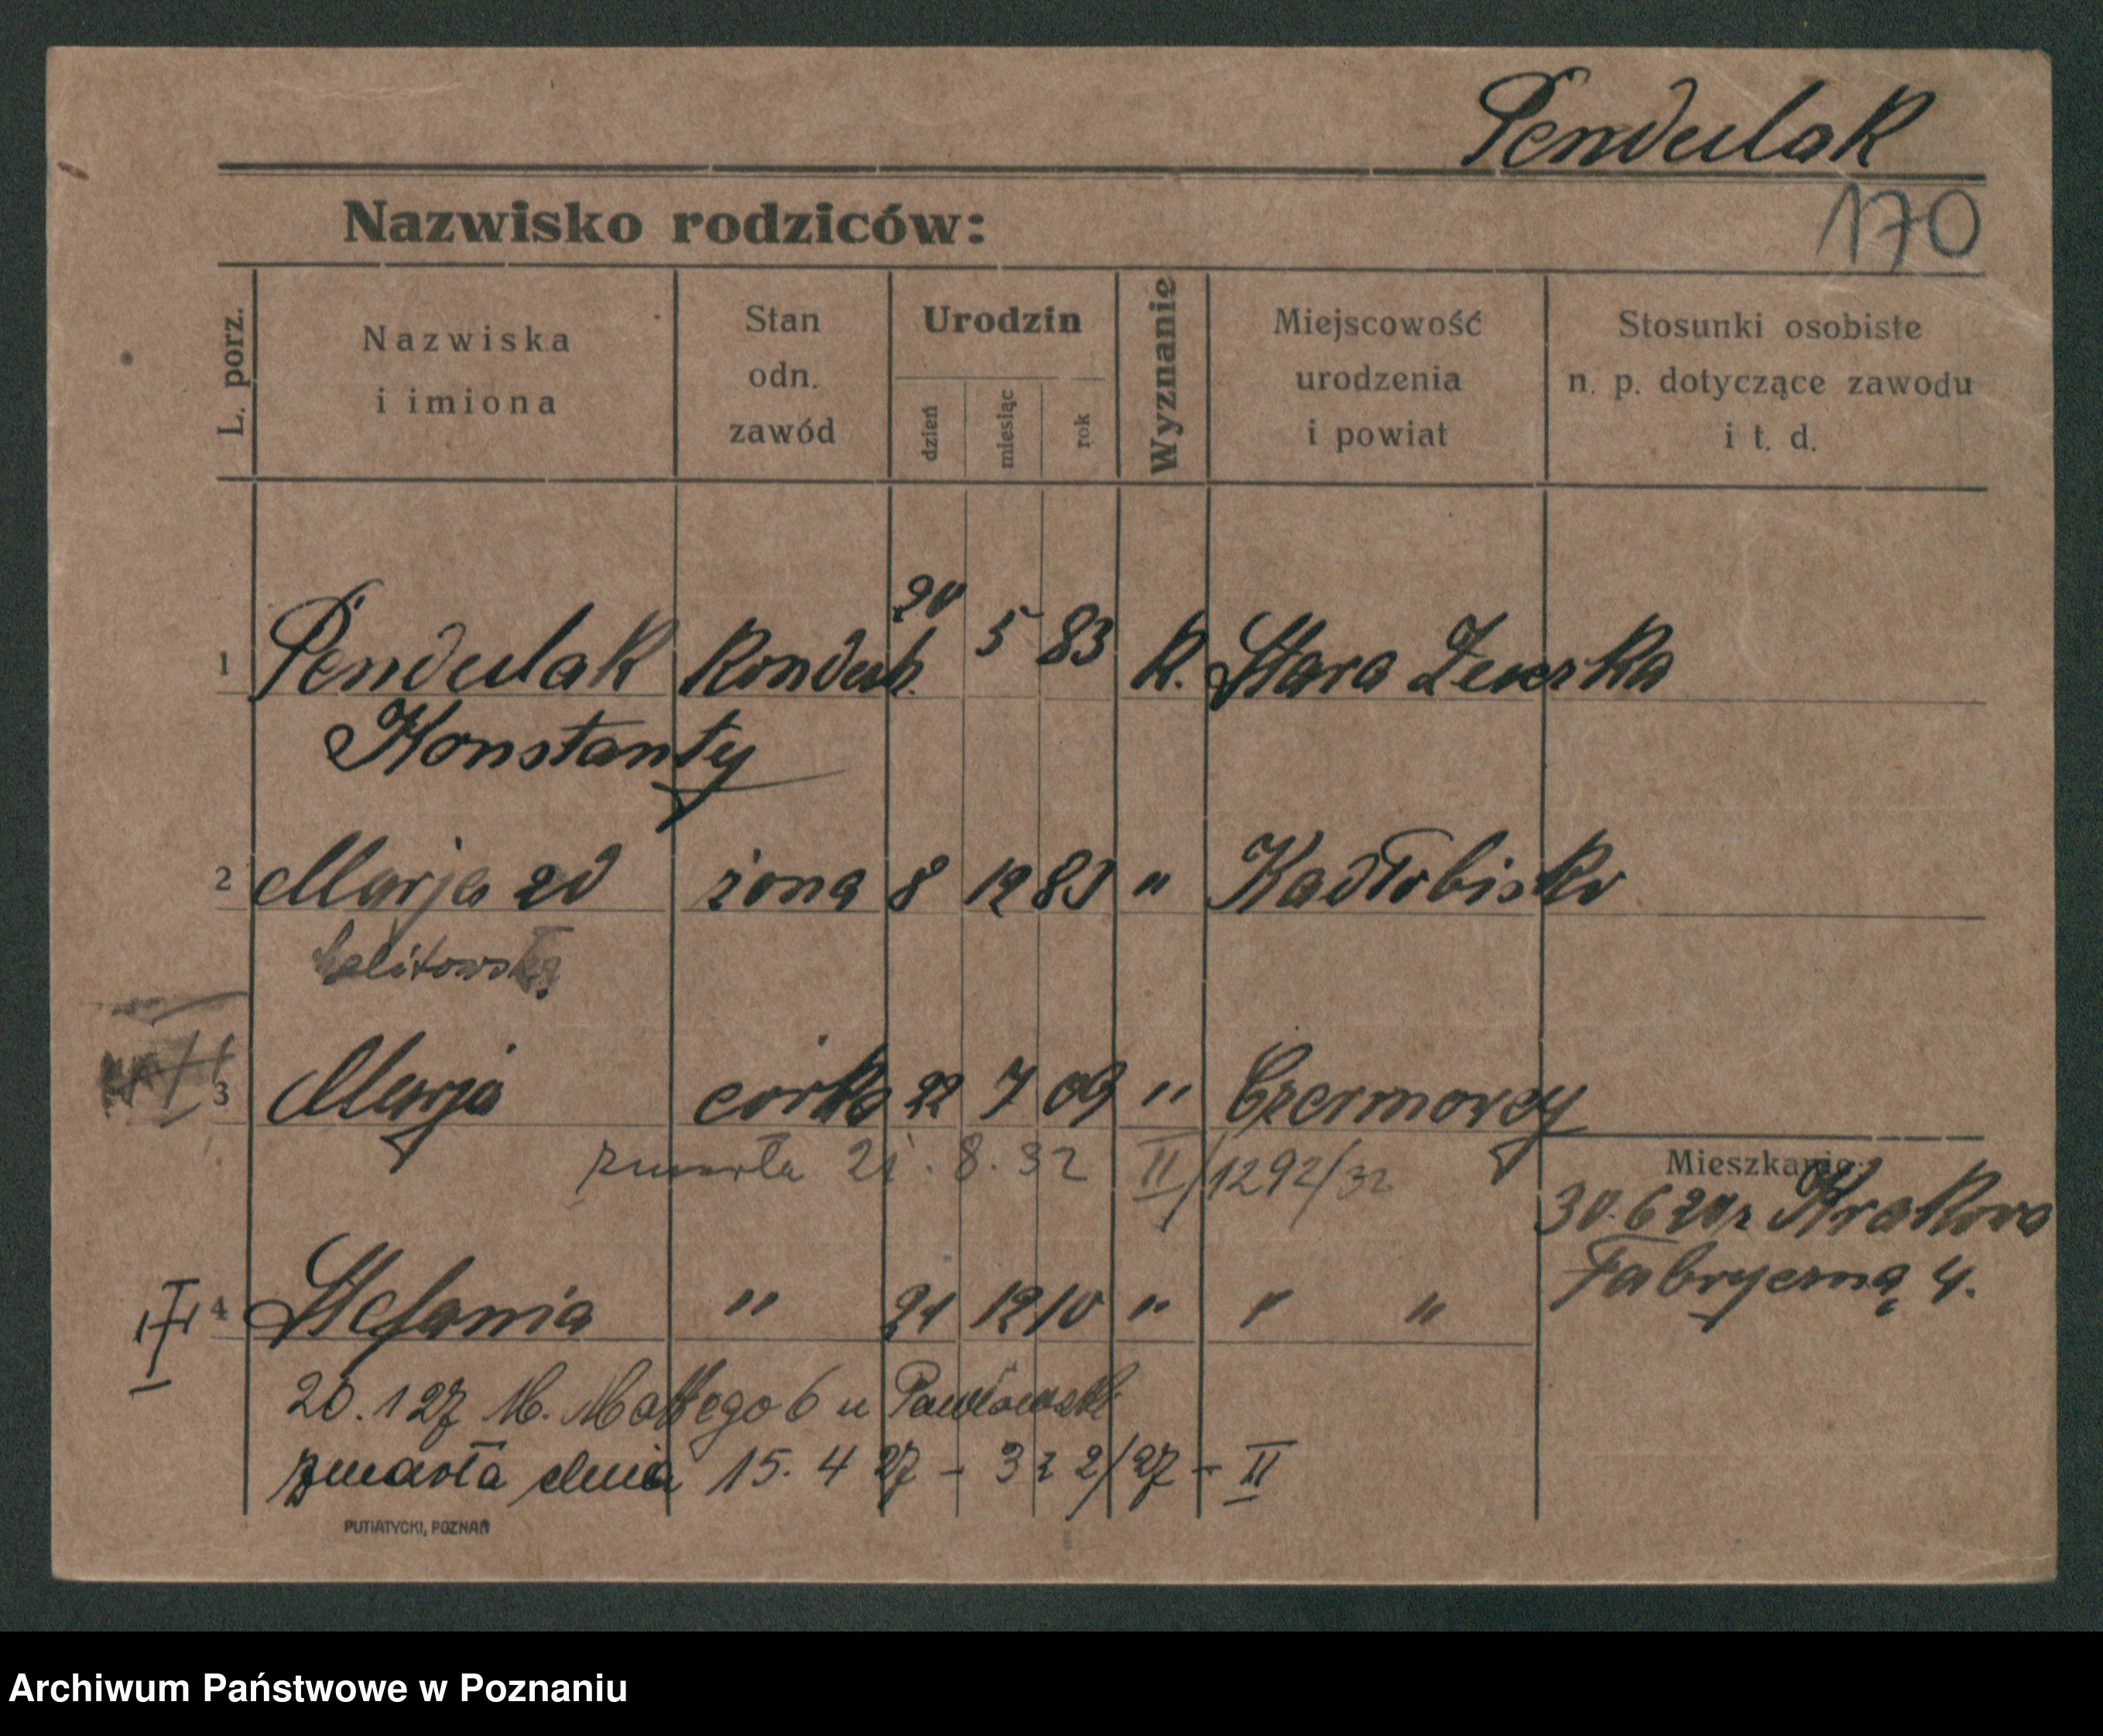 Pendulak
170
Nazwisko rodziców:
L. porz.
Nazwiska i imiona
Stan odn. zawód
Urodzin
dzień
miesiąc
rok
Wyznanie
Miejscowość urodzenia i powiat
Stosunki osobiste n. p. dotyczące zawodu i t. d.
1 Pendulak Konduk. 20 5 83 K. Stara
Konstanty
2 Marja zd żona 8 12 83 " Kadłobisko
3 Marja córka 22 7 09 " Czermowcy
zmarła 21. 8. 32 II/1292/32
Mieszkanie:
30. 6 20 z Krakowa
Fabryczną 4.
4 Stefania " 21 12 10 " " "
20. 1 27 M. 6 u Pawłowski
zmarła dnia 15. 4 27 – 322/27 – II
PUTIATYCKI, POZNAŃ
Archiwum Państwowe w Poznaniu